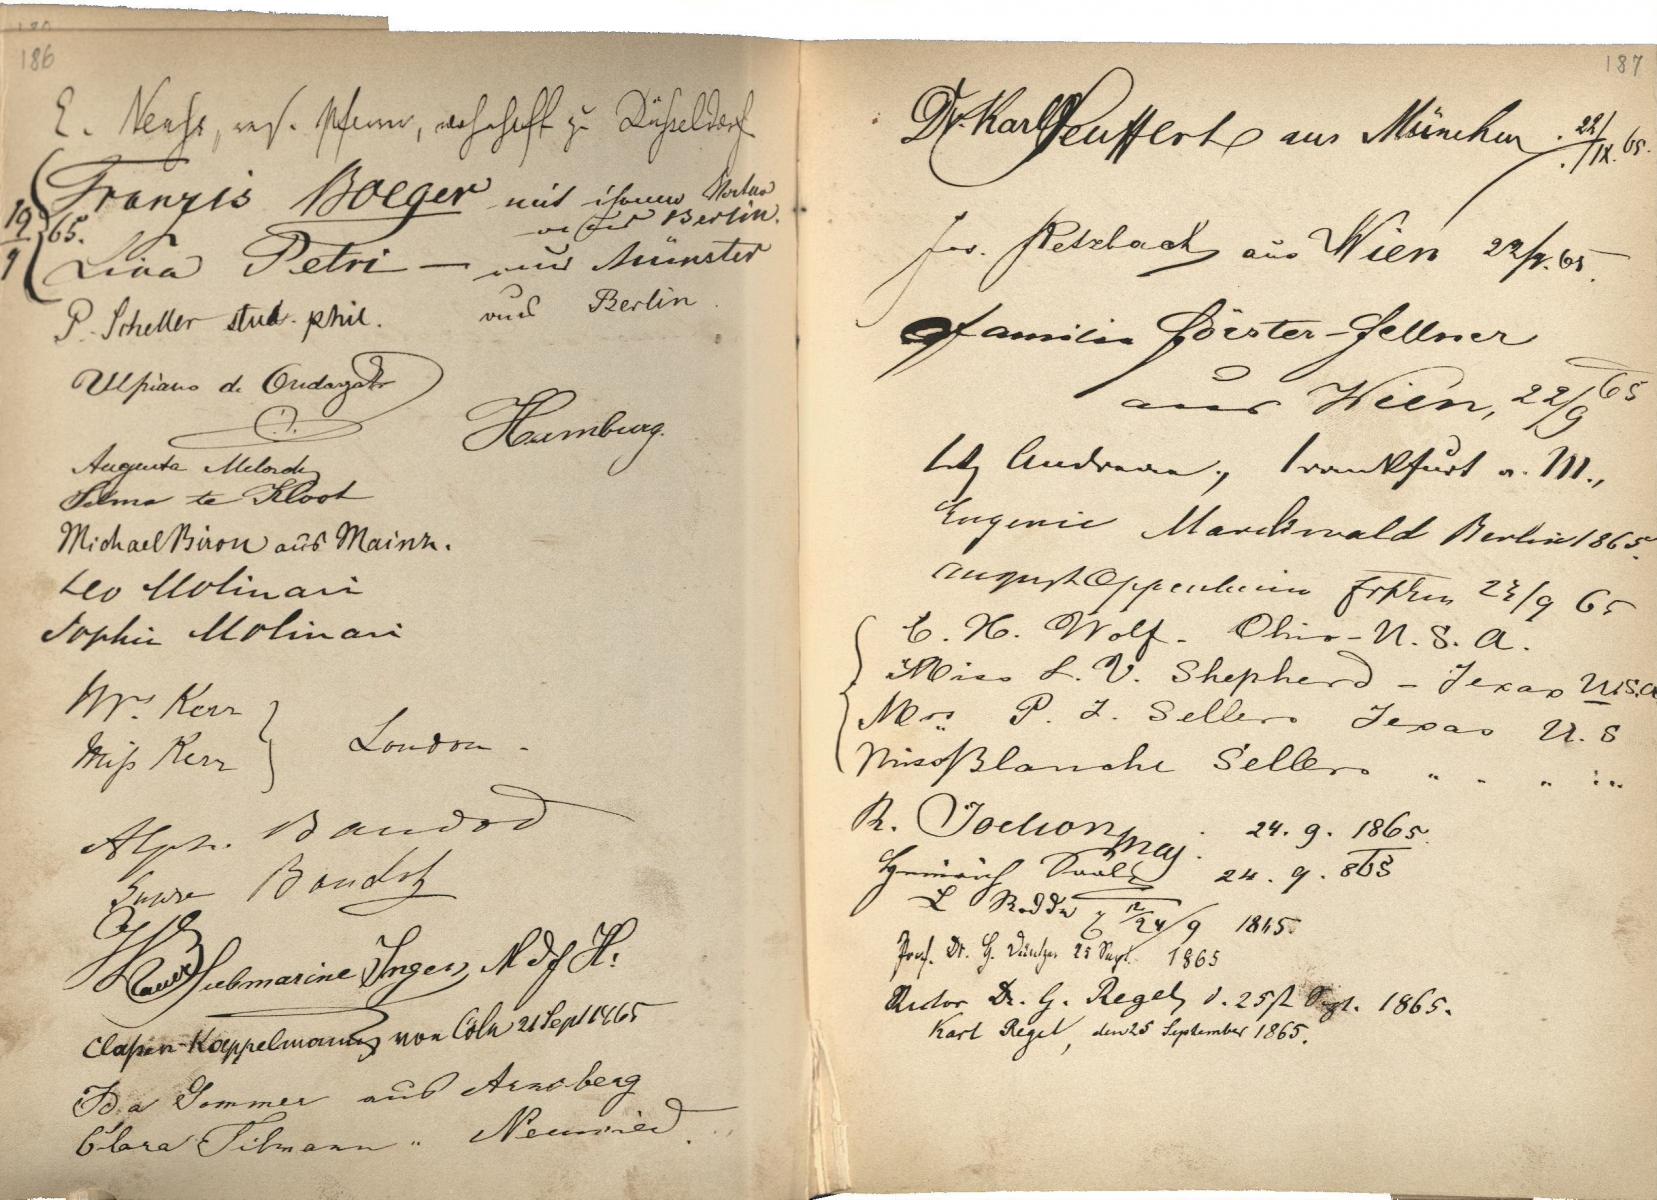 186
E. , Pfarrer, wohnhaft zu Düsseldorf
Franzis Boeger mit ihrem Vater
aus Berlin.
19/9 65.
Lina Petri — aus Münster
P. Scheller stud. phil. aus Berlin
Ulpiano de
Hamburg.
Augusta
Selma te Kloot
Michael Biron aus Mainz.
Leo Molinari
Sophie Molinari
Mrs. Kerr
Miss Kerr
London.
Alph. Baudod

Submarine Ingen,
Clasen-Kappelmann von Cöln 21 Sept 1865
Ida Sommer aus Arnsberg
Clara Tilmann " Neuwied.
187
Dr. Karl Seuffert aus München. 22/IX. 65.
Petzbach aus Wien 22/9. 65.
Familie Förster-Fellner
aus Wien, 22/9 65
Andreae, Frankfurt a. M.,
Eugenie Marckwald Berlin 1865.
August Oppenheim 65
C. H. Wolf - Ohio - U. S. A.
Miss L. V. Shepherd - Texas U.S.A
Mrs. P. L. Sellers Texas U. S
Miss Blanche Sellers " " " "
R. Jackson 24. 9. 1865.
Heinrich 24. 9. 865
L 24/9 1865
Prof. Dr. H. Düntzer 25 Sept. 1865
Rector Dr. G. Regel, d. 25st Sept. 1865.
Karl Regel, den 25 September 1865.